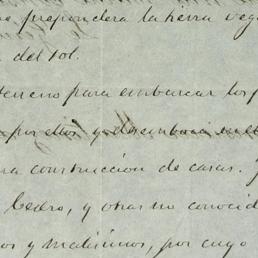 prepondera la tierra veg
del sol.
terreno para embarcar los
por ellos y desemboca en el
ra construccion de casas.
Cedro, y otras no conocid
os y malísimos, por cuyo